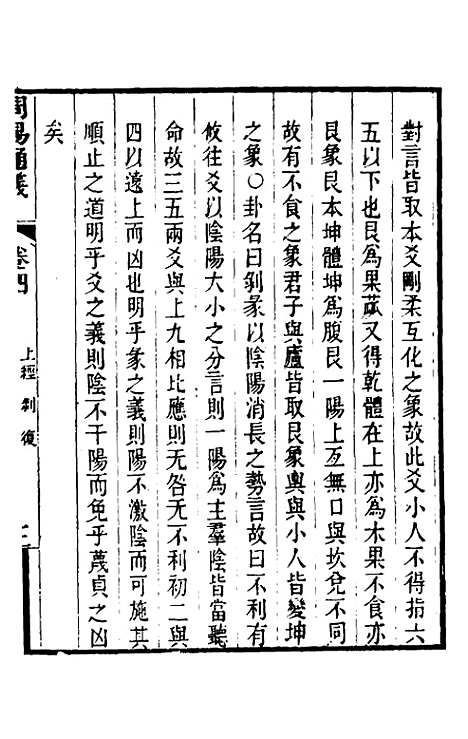 對言皆取本爻剛柔互化之象故此爻小人不得指六
五以下也艮爲果蓏又得乾體在上亦爲木果不食亦
艮象艮本坤體坤爲腹艮一陽上亙無口與坎兌不同
故有不食之象君子與廬皆取艮象輿與小人皆變坤
之象○卦名曰剝彖以陰陽消長之勢言故曰不利有
攸往爻以陰陽大小之分言則一陽爲主羣陰皆當聽
命故三五兩爻與上九相比應則无咎无不利初二與
四以遠上而凶也明乎彖之義則陽不激陰而可施其
順止之道明乎爻之義則陰不干陽而免乎蔑貞之凶
矣
周易通義
卷四
上經 剝復